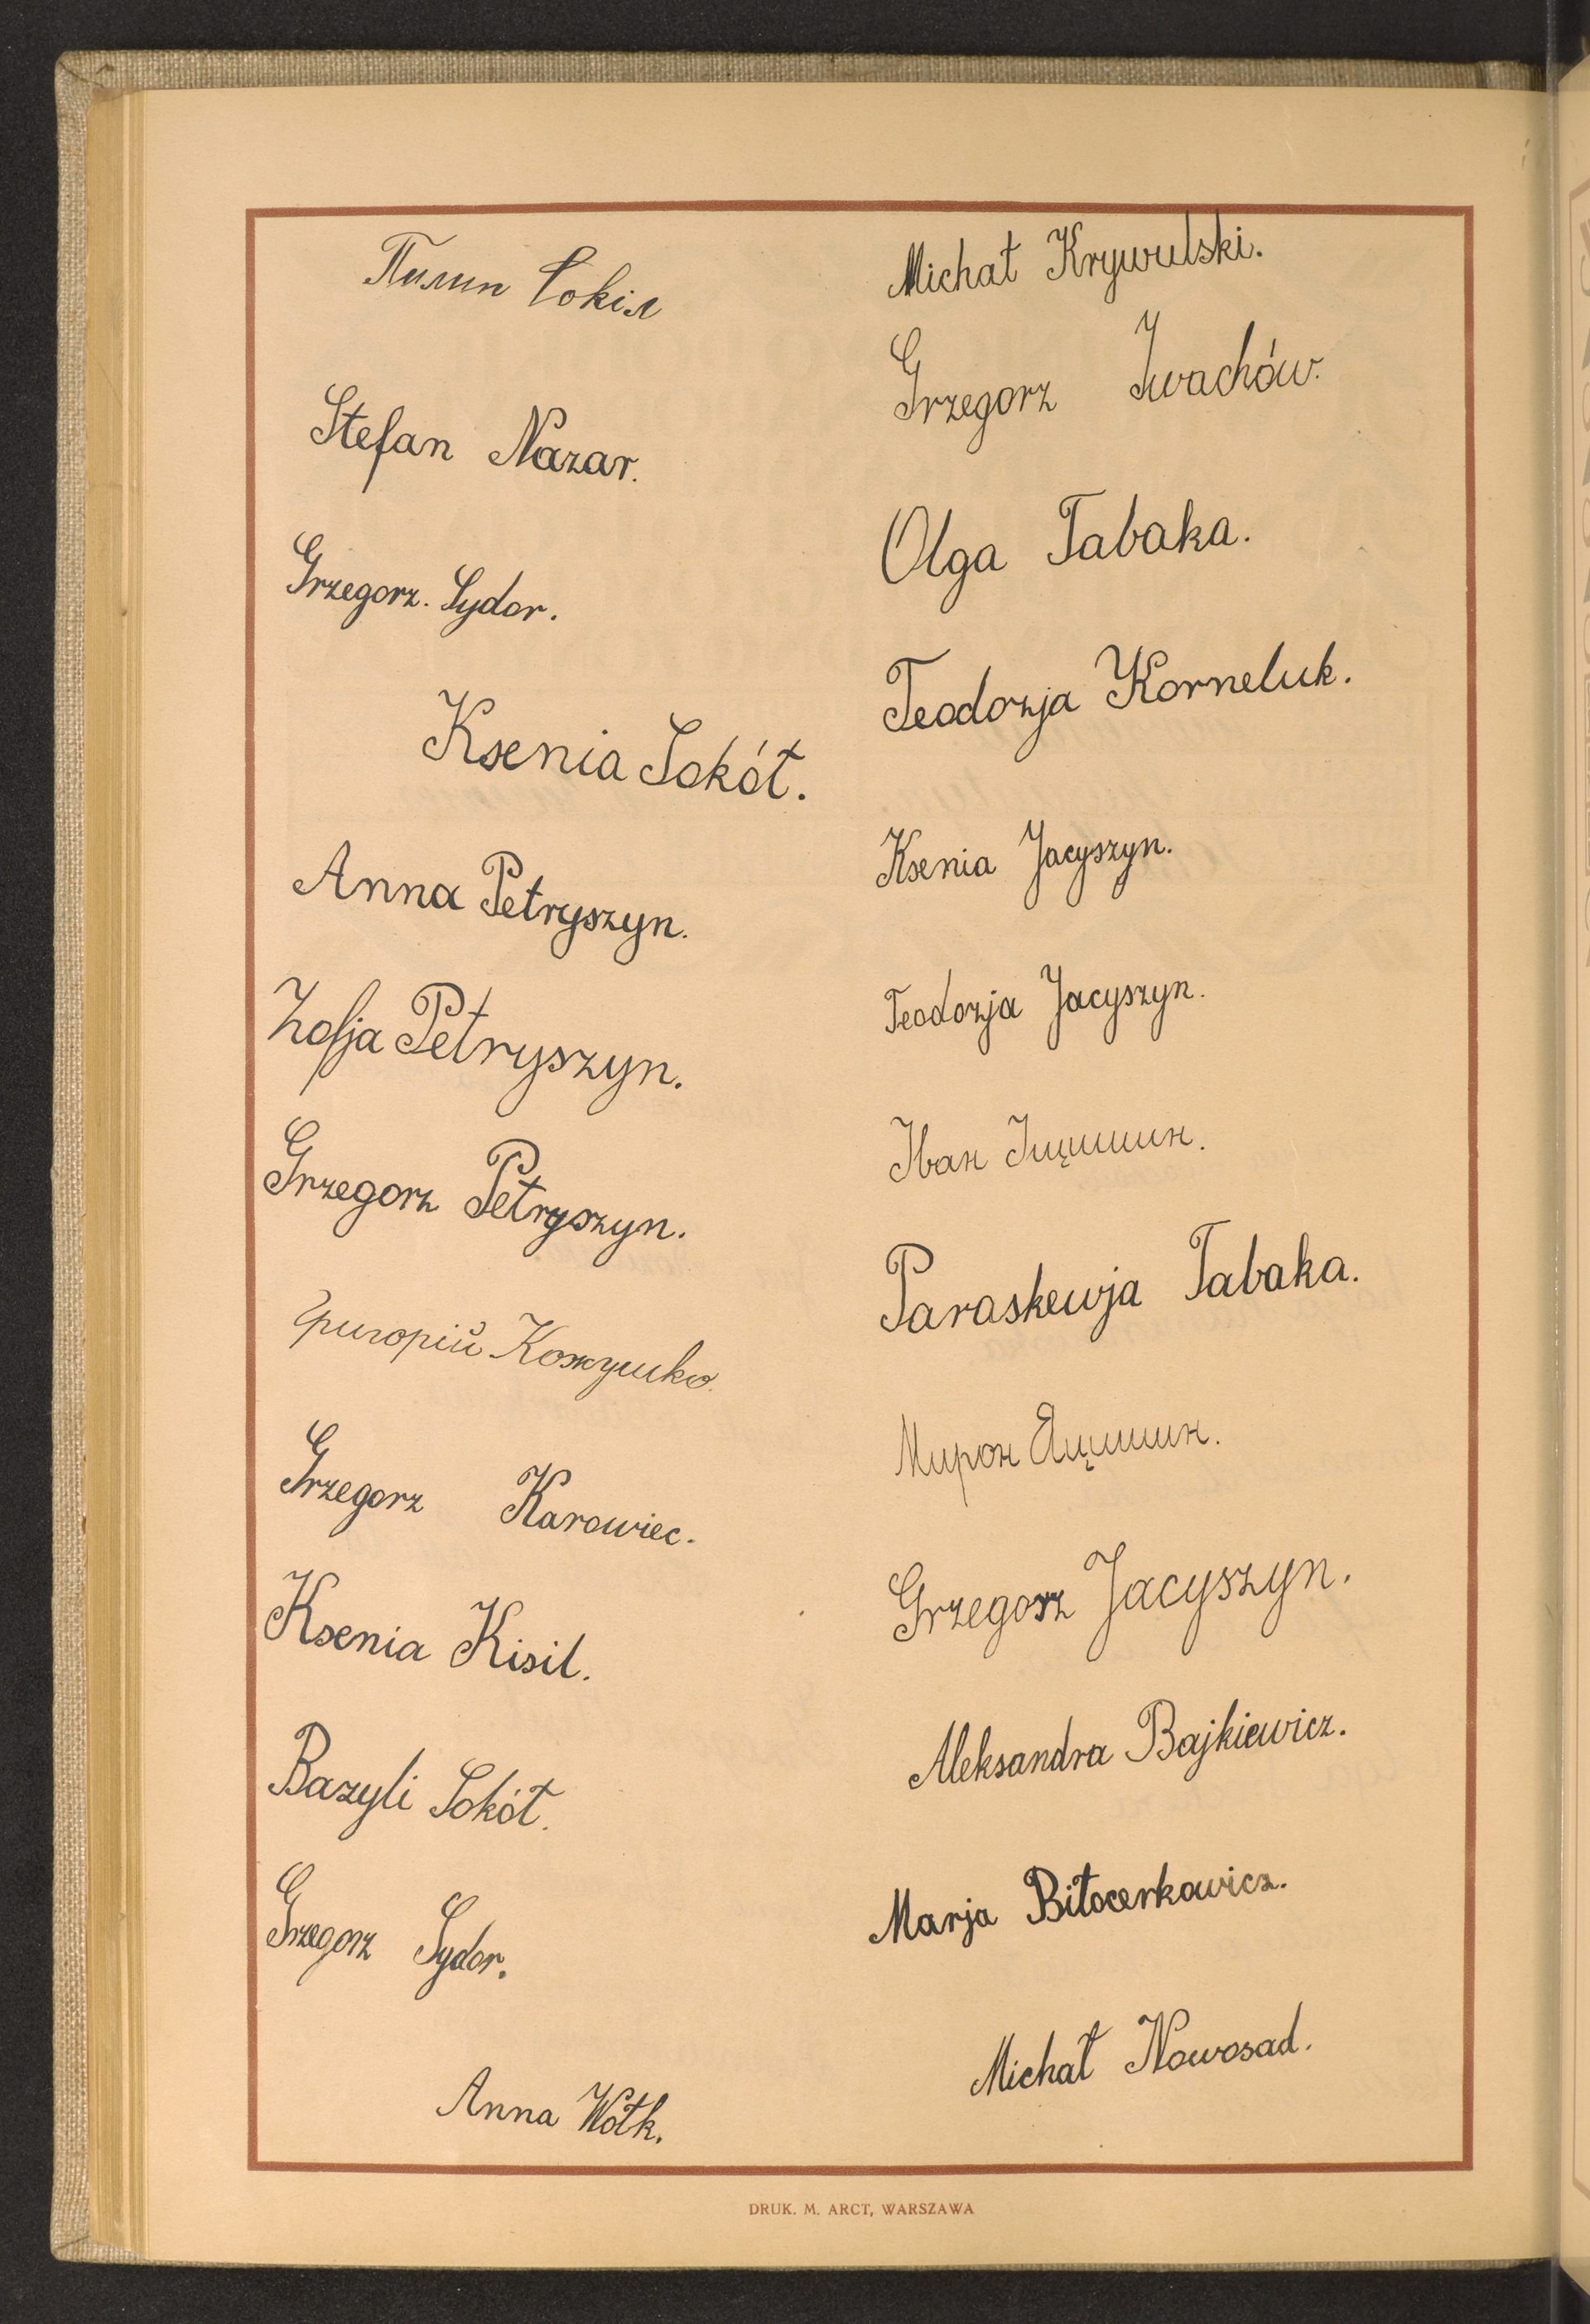 Пилип Сокіл
Stefan Nazar.
Grzegorz. Sydor.
Ksenia Sokół.
Anna Petryszyn.
Zofja Petryszyn.
Grzegorz Petryszyn.
Григорій Кожушко.
Grzegorz Karowiec.
Ksenia Kisil.
Bazyli Sokół.
Grzegorz Sydor.
Anna Wołk.
Michał Krywulski.
Grzegorz Iwachów.
Olga Tabaka.
Teodozja Korneluk.
Ksenia Jacyszyn.
Teodozja Jacyszyn.
Іван Іцишин.
Paraskewja Tabaka.
Мирон Яцишин.
Grzegorz Jacyszyn.
Aleksandra Bajkiewicz.
Marja Biłocerkowicz.
Michał Nowosad.
DRUK. M. ARCT, WARSZAWA